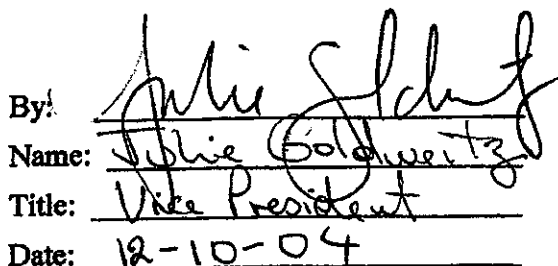 By: Julie
Name: Julie Goldweitz
Title: Vice President
Date: 12-10-04